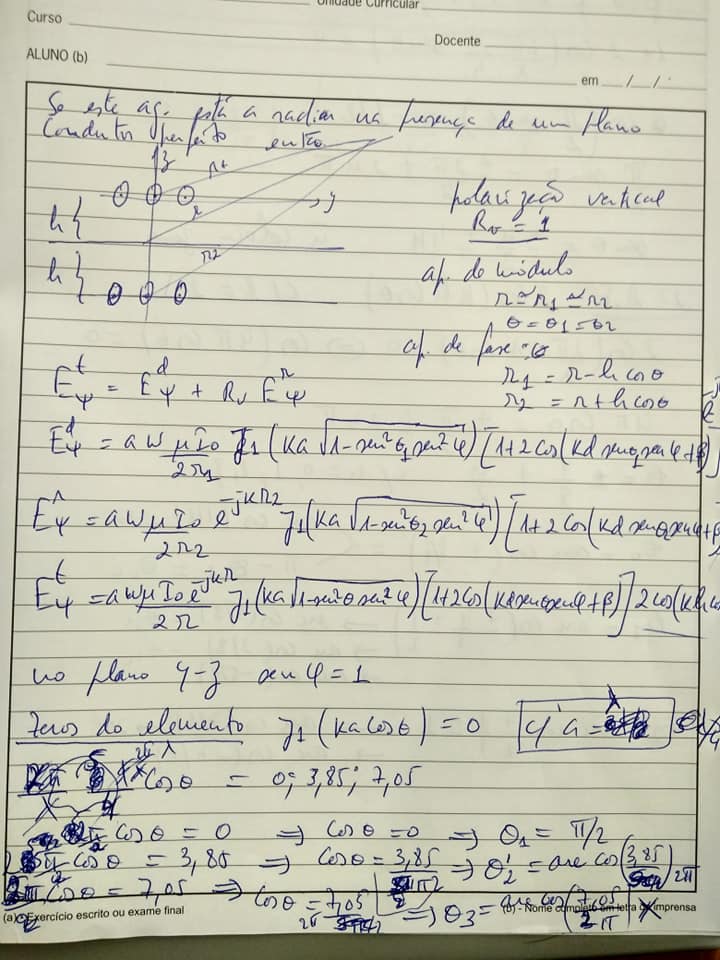 Unidade Curricular
Curso
Docente
ALUNO (b)
em / /
Se este ag. está a radiar na presença de um plano
Condutor perfeito então
z
r1
y
r
h
r2
h
polarização vertical
Rv = 1
ap. de módulo
r ≃ r1 ≃ r2
θ = θ1 = θ2
ap. de fase:
r1 = r - h cos θ
r2 = r + h cos θ
E_ψ^t = E_ψ^d + Rv E_ψ^r
E_ψ^d = a w μ I0 / 2 r1 J1 (Ka √(1 - sen²θ1 sen²φ)) [1 + 2 cos (Kd senθ1 senφ + β)]
E_ψ^r = a w μ I0 e^(-jkr2) / 2 r2 J1 (Ka √(1 - sen²θ2 sen²φ)) [1 + 2 cos (Kd senθ2 senφ + β
E_ψ^t = a w μ I0 e^(-jkr) / 2 r J1 (Ka √(1 - sen²θ sen²φ)) [1 + 2 cos (Kd senθ senφ + β)] 2 cos (Kh cos
no plano y-z sen φ = 1
Zeros do elemento J1 (Ka cos θ) = 0
a =
cos θ = 0; 3,85; 7,05
cos θ = 0 ⇒ cos θ = 0 ⇒ θ1 = π/2
cos θ = 3,85 ⇒ cos θ = 3,85 ⇒ θ2' = arc cos (3,85 / 2π
cos θ = 7,05 ⇒ cos θ = 7,05 / 2π ⇒ θ3 = arc cos (7,05 / 2π) X
(a) Exercício escrito ou exame final
(b) - Nome completo em letra de imprensa